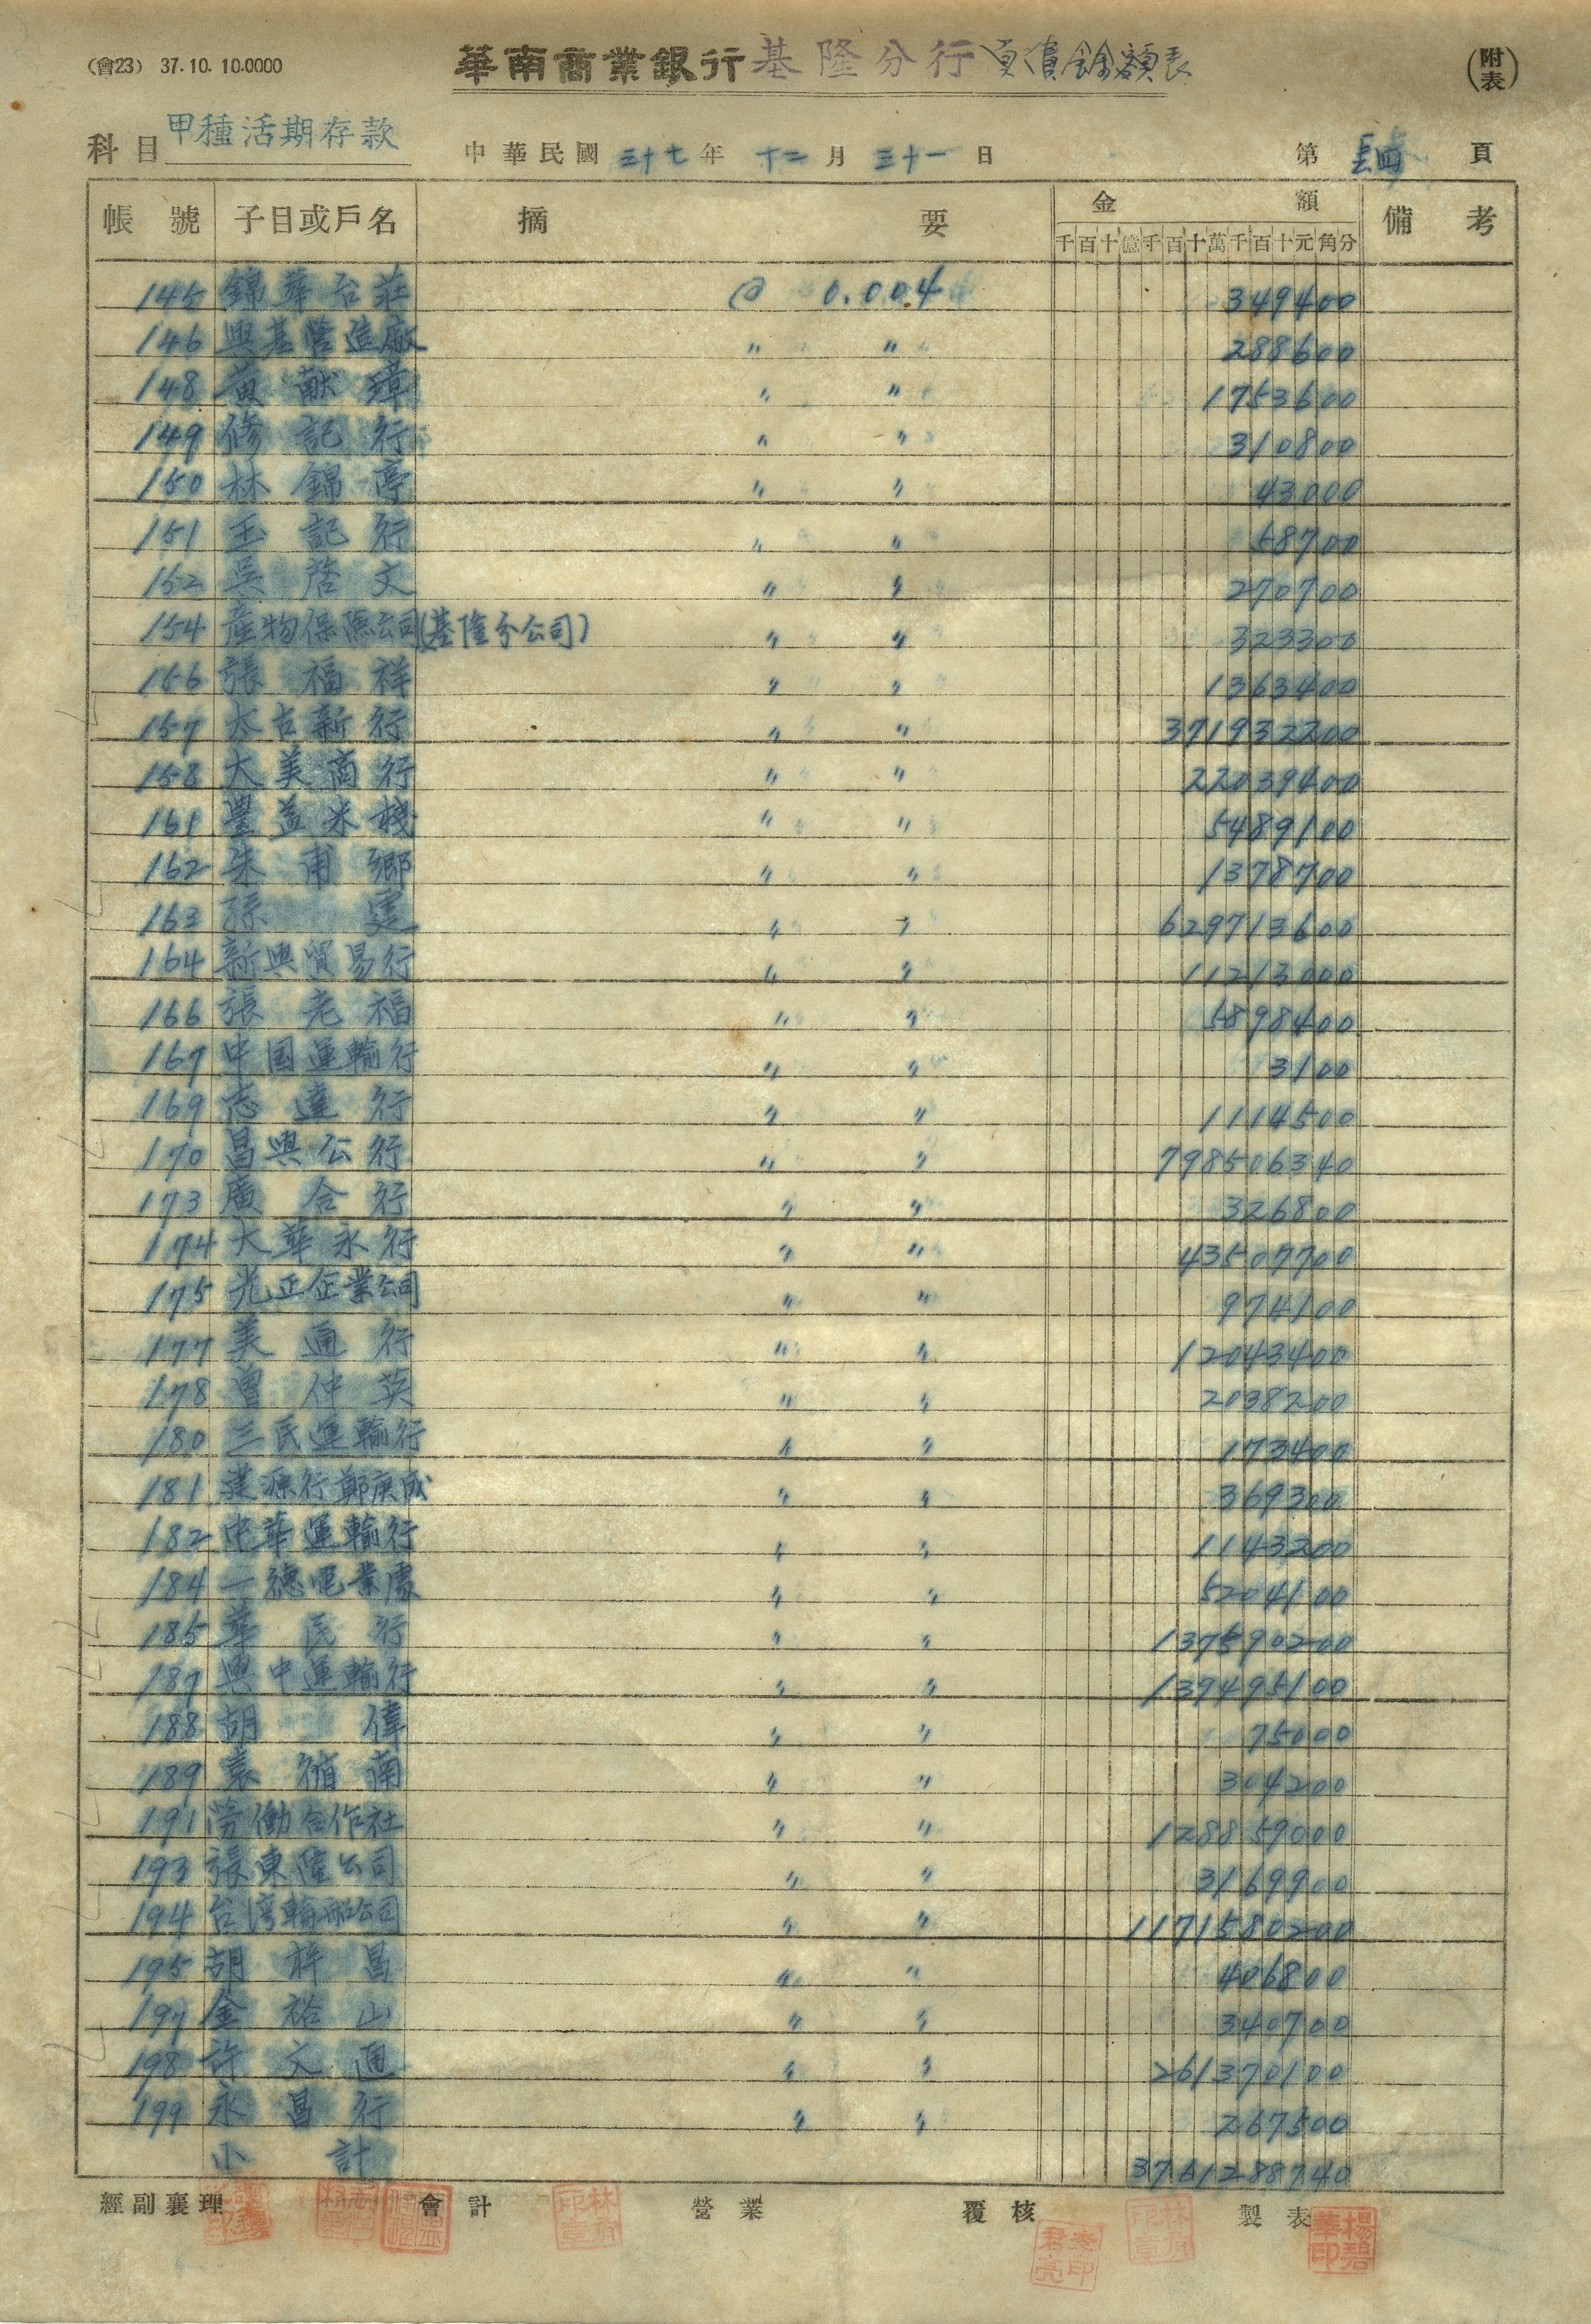 (會23) 37.10.10.0000
華南商業銀行基隆分行負債餘額表
(附表)
科目 甲種活期存款
中華民國三十七年十二月三十一日
第 頁
帳號 子目或戶名 摘要 金額 備考
千百十億千百十萬千百十元角分
145 錦華台莊 @ 0.004 349400
146 興基營造廠 〃 〃 288600
148 黃献璋 〃 〃 1753600
149 修記行 〃 〃 310800
150 林錦亭 〃 〃 43000
151 玉記行 〃 〃 58700
152 吳啓文 〃 〃 270700
154 產物保險公司(基隆分公司) 〃 〃 323300
156 張福祥 〃 〃 1363400
157 太古新行 〃 〃 371932200
158 大美商行 〃 〃 22039400
161 豐益米棧 〃 〃 5489100
162 朱甫鄉 〃 〃 1378700
163 孫 〃 〃 629713600
164 新興貿易行 〃 〃 11213000
166 張老福 〃 〃 5898400
167 中国運輸行 〃 〃 3100
169 志達行 〃 〃 1114500
170 昌興公行 〃 〃 798506340
173 廣合行 〃 〃 326800
174 大華永行 〃 〃 43507700
175 光正企業公司 〃 〃 974100
177 美通行 〃 〃 12043400
178 曾仲英 〃 〃 2038200
180 三民運輸行 〃 〃 173400
181 建源行鄭庚成 〃 〃 369300
182 中華運輸行 〃 〃 1143200
184 一德電業處 〃 〃 5204100
185 華民行 〃 〃 137590200
187 興中運輸行 〃 〃 139495100
188 胡偉 〃 〃 75000
189 袁南 〃 〃 304200
191 勞働合作社 〃 〃 128859000
193 張東隆公司 〃 〃 3169900
194 台湾輪船公司 〃 〃 1171580200
195 胡梓昌 〃 〃 406800
197 金裕山 〃 〃 340700
198 許文通 〃 〃 261370100
199 永昌行 〃 〃 267500
小計 3761288740
經副襄理 會計 營業 覆核 製表
楊碧華印